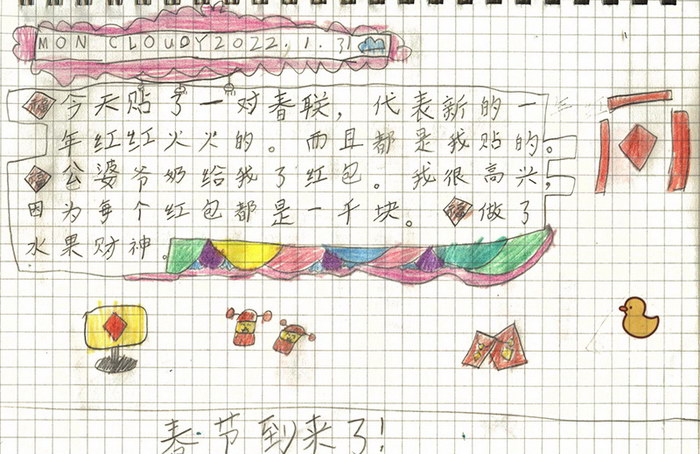 MON CLOUDY 2022.1.31
福今天贴了一对春联，代表新的一
年红红火火的。而且都是我贴的。
福公婆爷奶给我了红包。我很高兴，
因为每个红包都是一千块。福做了
水果财神。
春节到来了!